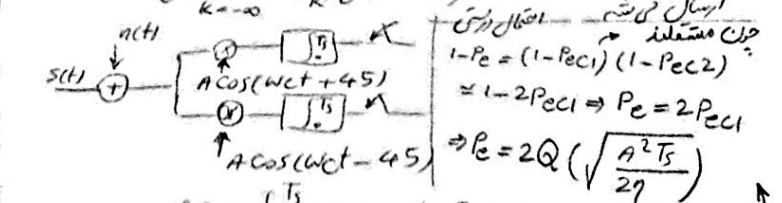 k=-∞
n(t)
s(t)
+
×
∫₀^Ts
A cos(ωct + 45)
×
∫₀^Ts
A cos(ωct - 45)
Ts
ارسال می شد
چون مستقلند احتمال درستی
1-Pe = (1-Pec1)(1-Pec2)
≃ 1-2Pec1 ⇒ Pe = 2Pec1
⇒ Pe = 2Q(√(A²Ts/2η))